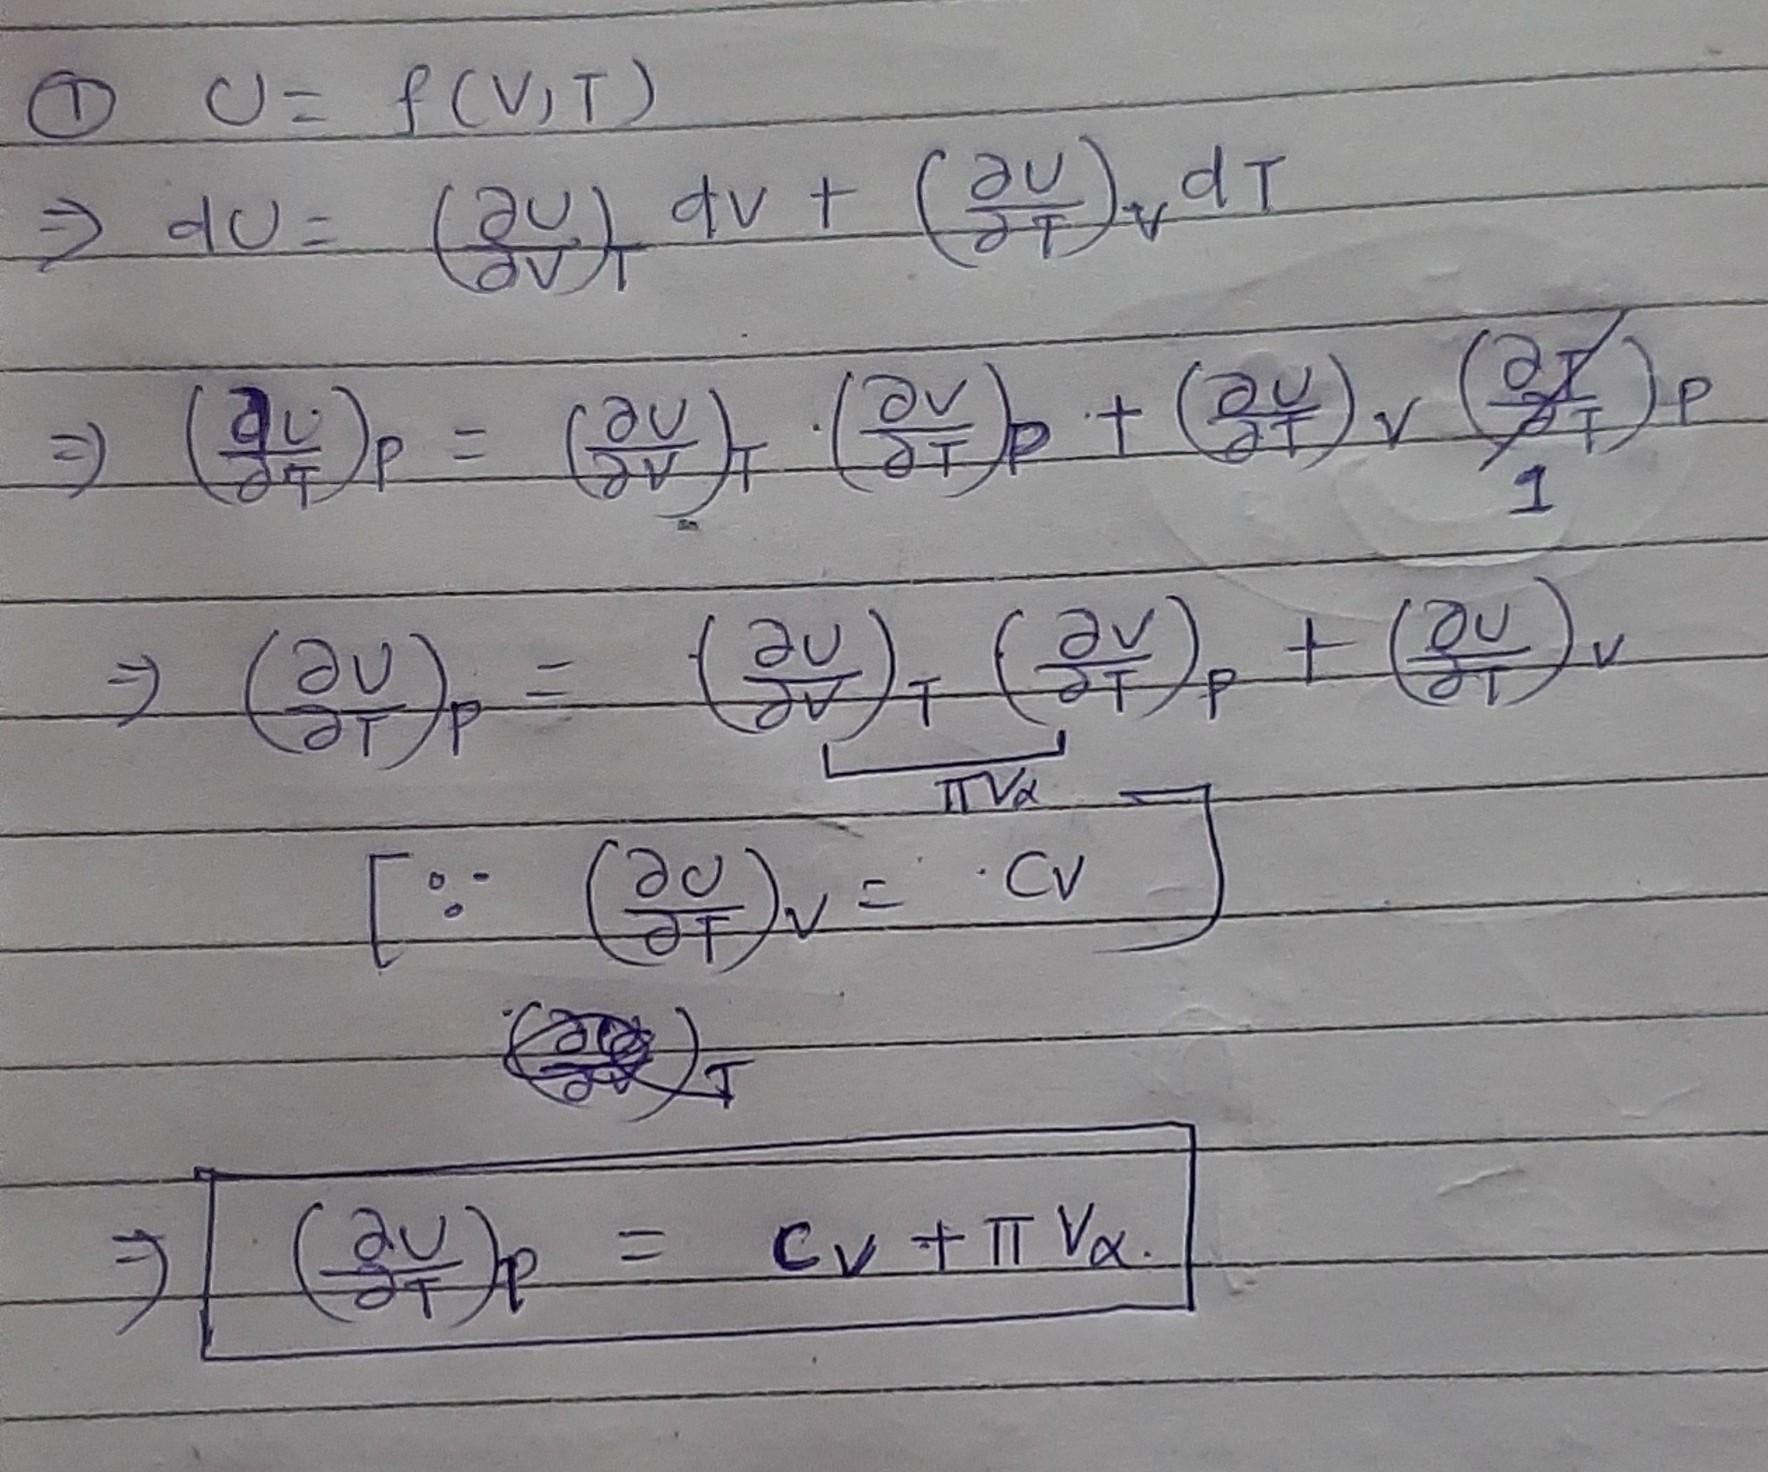 ① U = f(V,T)
⇒ dU = (∂U/∂V)_T dV + (∂U/∂T)_V dT
⇒ (∂U/∂T)_P = (∂U/∂V)_T · (∂V/∂T)_P + (∂U/∂T)_V (∂T/∂T)_P
1
⇒ (∂U/∂T)_P = (∂U/∂V)_T (∂V/∂T)_P + (∂U/∂T)_V
πVα
[∵ (∂U/∂T)_V = CV]
⇒ (∂U/∂T)_P = CV + πVα.